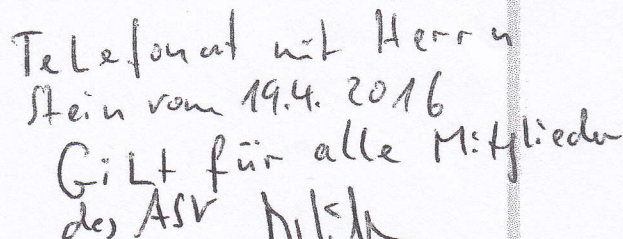 Telefonat mit Herrn
Stein vom 19.4. 2016
Gilt für alle Mitglieder
des ASV